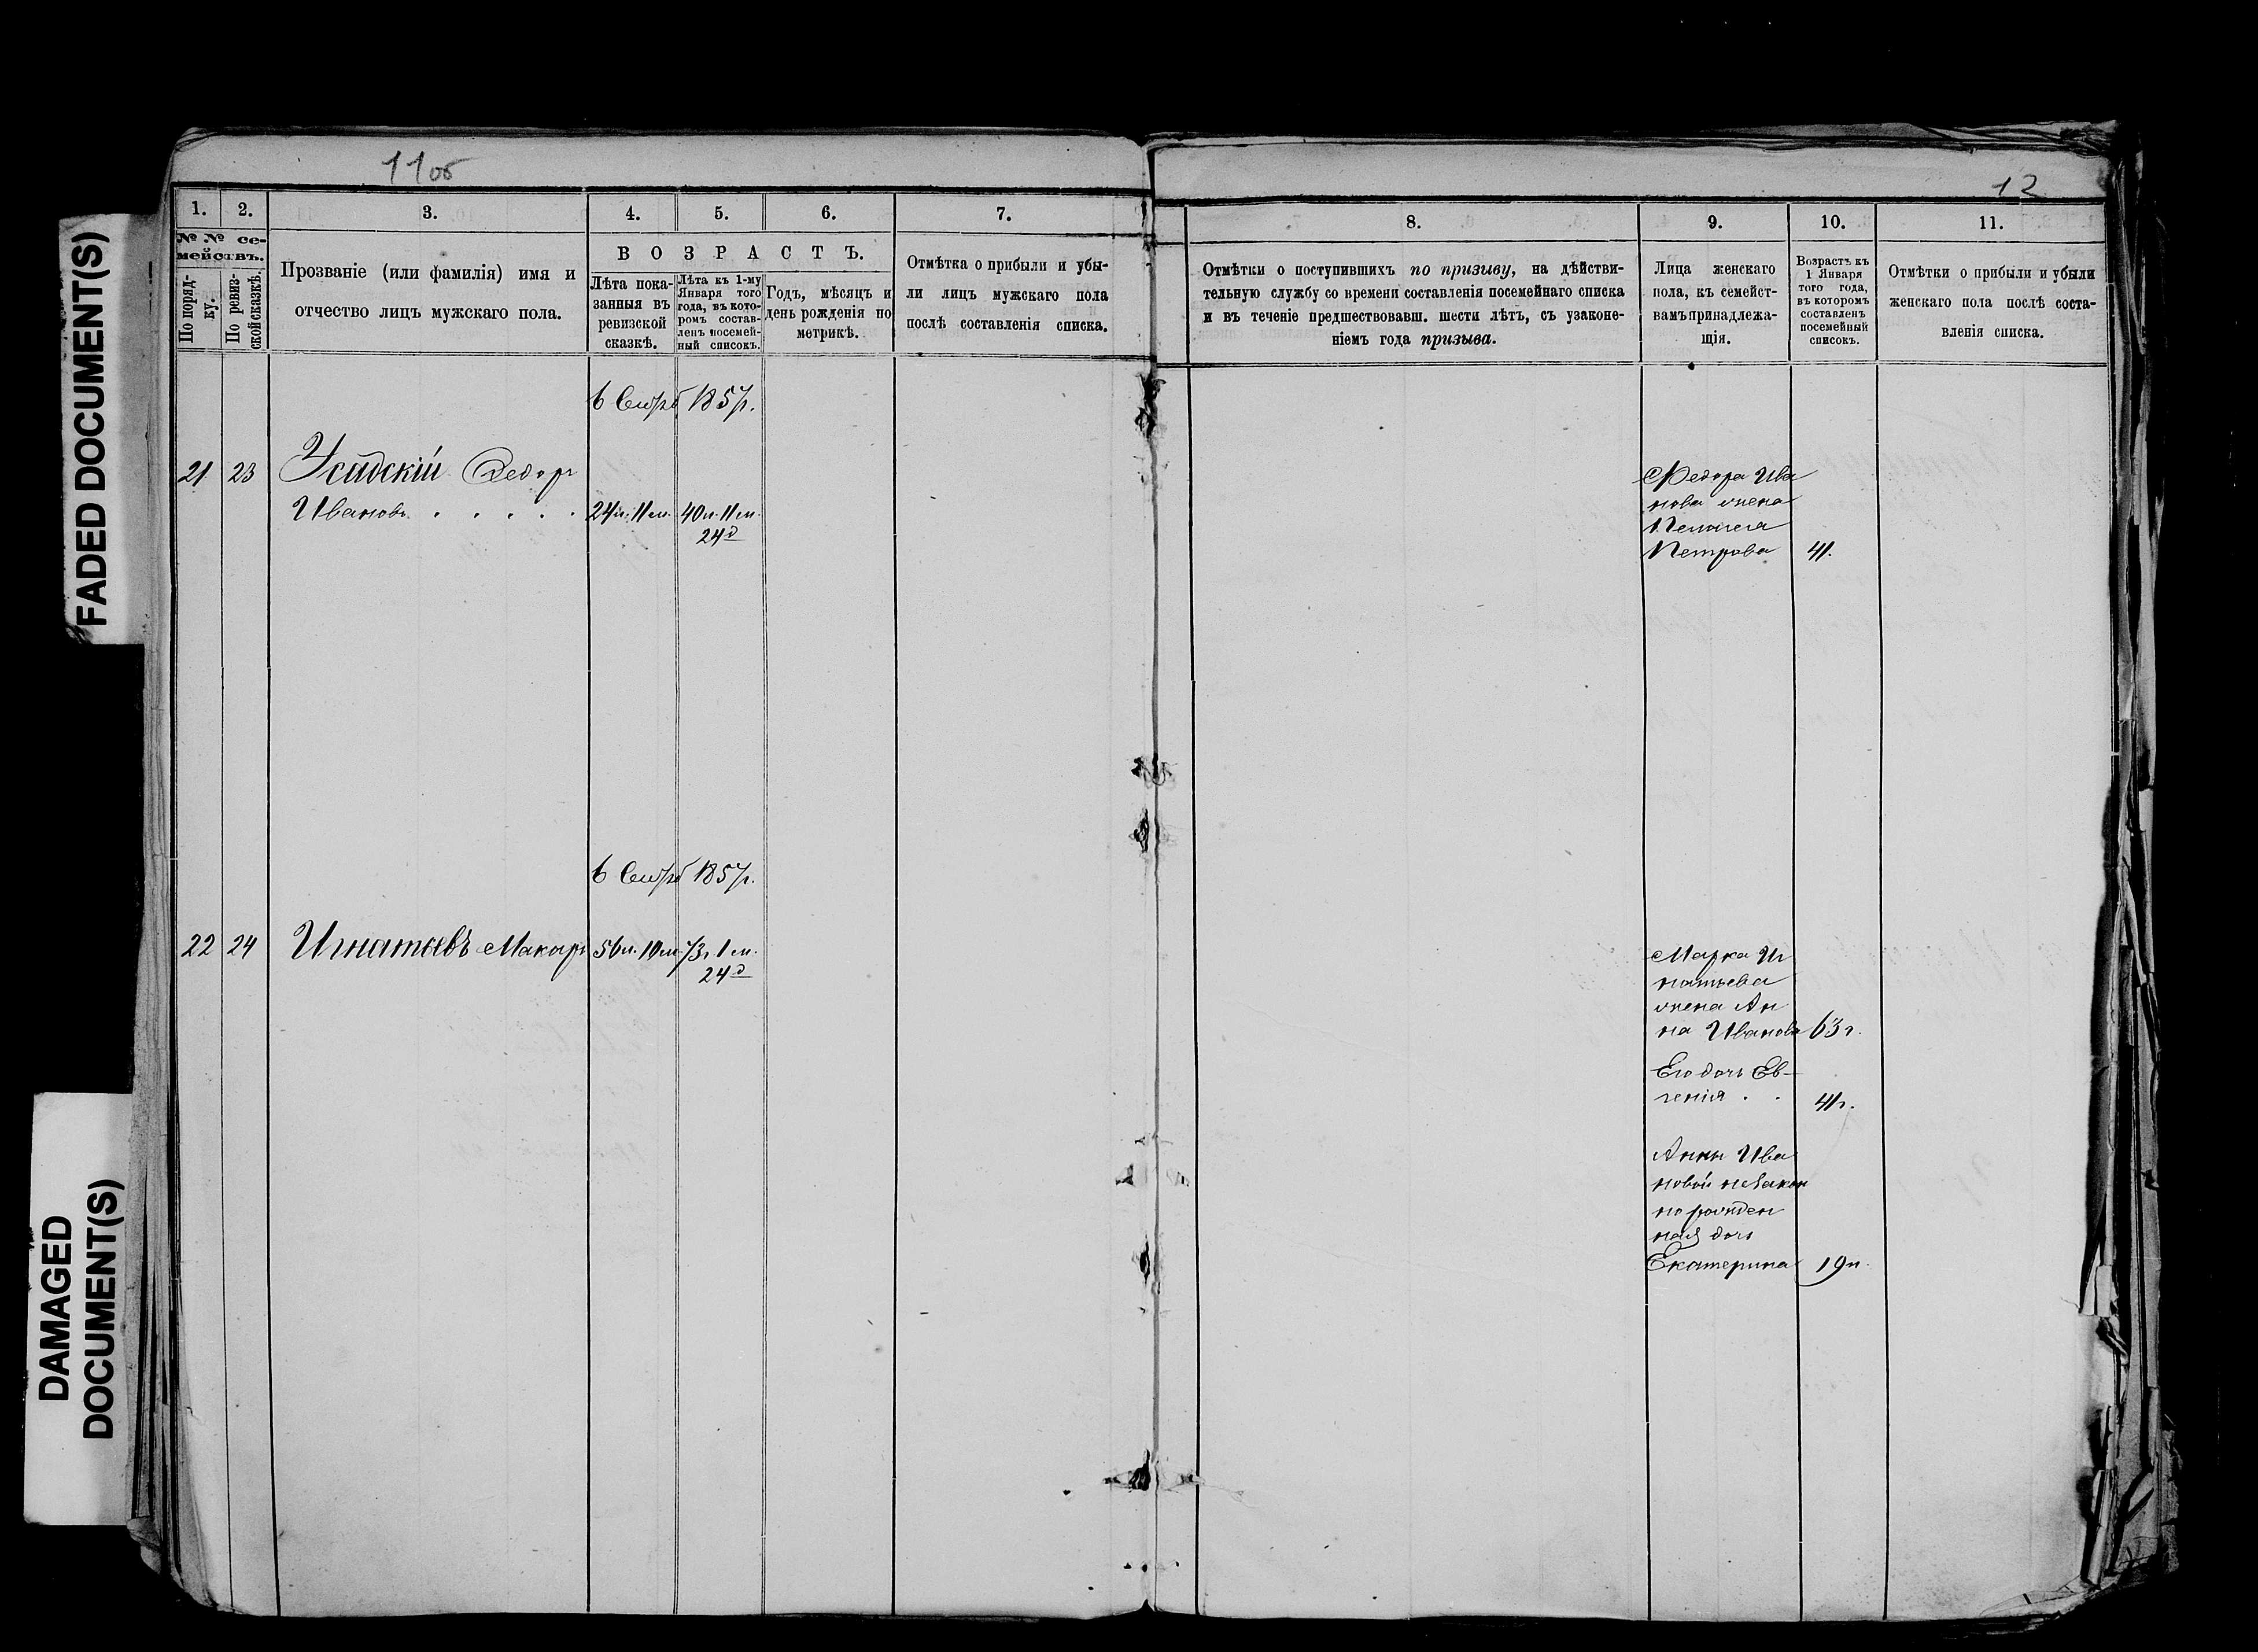 FADED DOCUMENT(S)
DAMAGED
DOCUMENT(S)
11об
1. 2. 3. 4. 5. 6. 7.
№ № се-
мействъ.
По поряд-
ку.
По ревиз-
ской сказкѣ.
Прозваніе (или фамилія) имя и
отчество лицъ мужскаго пола.
ВОЗРАСТЪ.
Лѣта пока-
занныя въ
ревизской
сказкѣ.
Лѣта къ 1-му
Января того
года, въ кото-
ромъ состав-
ленъ посемей-
ный списокъ.
Годъ, мѣсяцъ и
день рожденія по
метрикѣ.
Отмѣтка о прибыли и убы-
ли лицъ мужскаго пола
послѣ составленія списка.
1857г.
21 23 Усадскій Федоръ
Ивановъ . . . . . 24л. 11м. 40л. 11м.
24д
1857г.
22 24 Игнатьевъ Макаръ 56л. 10м. 73г. 1м.
24д
12
8. 9. 10. 11.
Отмѣтки о поступившихъ по призыву, на дѣйстви-
тельную службу со времени составленія посемейнаго списка
и въ теченіе предшествовавш. шести лѣтъ, съ узаконе-
ніемъ года призыва.
Лица женскаго
пола, къ семейст-
вамъ принадлежа-
щія.
Возрастъ къ
1 Января
того года,
въ которомъ
составленъ
посемейный
списокъ.
Отмѣтки о прибыли и убыли
женскаго пола послѣ соста-
вленія списка.
Федора Ива
нова жена
Пелагея
Петрова 41.
Марка Иг
натьева
жена Ан
на Иванова 63г.
Его дочь Ев-
генія . . 41г.
Анны Ива
новой незакон
норожден
ная дочь
Екатерина 19л.